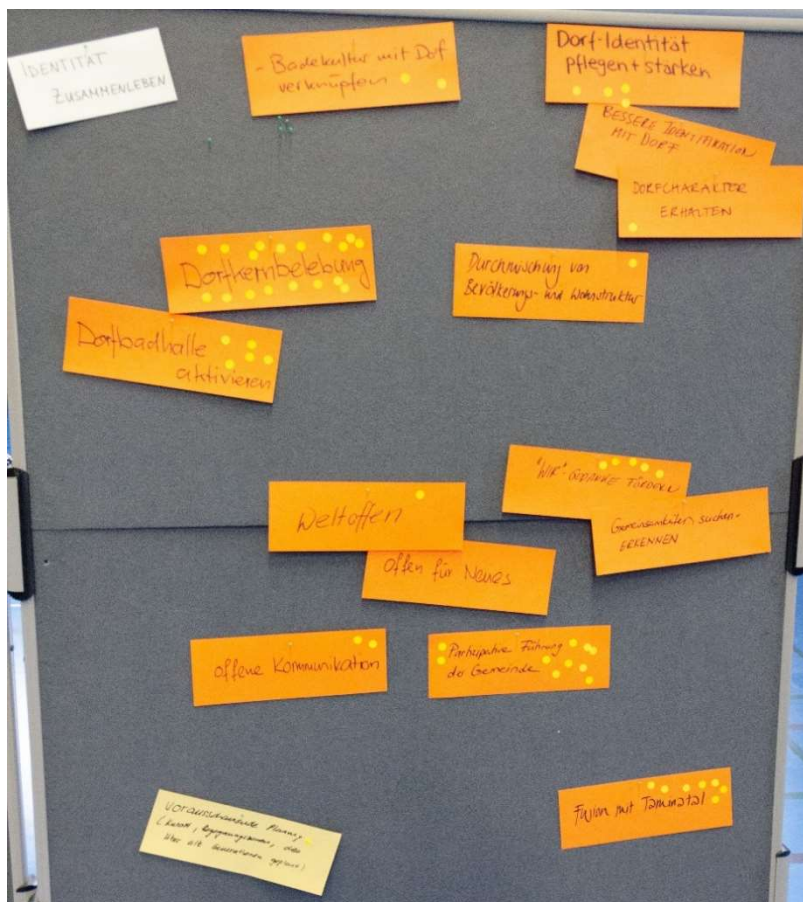 IDENTITÄT
ZUSAMMENLEBEN
- Badekultur mit Dorf
verknüpfen
Dorf-Identität
pflegen + stärken
BESSERE IDENTIFIKATION
MIT DORF
DORFCHARAKTER
ERHALTEN
Dorfkernbelebung
Durchmischung von
Bevölkerungs- und Wohnstruktur
Dorfbadhalle
aktivieren
"WIR" GEDANKE FÖRDERN
Gemeinsamkeiten suchen -
ERKENNEN
Weltoffen
Offen für Neues
offene Kommunikation
Partizipative Führung
der Gemeinde
Vorausschauende Planung
über alle Generationen geplant)
Fusion mit Taminatal